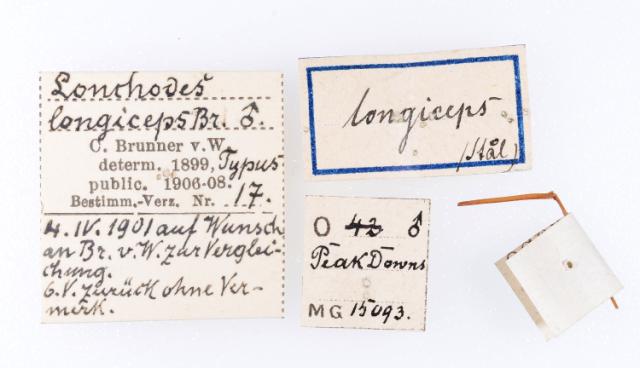 Lonchodes
longiceps Br. ♂.
C. Brunner v.W.
determ. 1899, Typus
public. 1906-08.
Bestimm.-Verz. Nr. 17.
4. IV. 1901 auf Wunsch
an Br. v. W. zur Verglei-
chung.
6. V. zurück ohne Ver-
merk.
longiceps
(Stål)
O 42 ♂
Peak Downs
MG 15093.